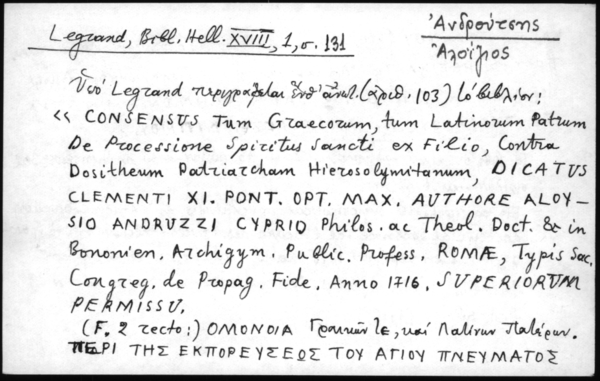 Legrand, Bibl. Hell. XVIII, 1, σ. 131
Ἀνδρούτσης
Ἀλοΐσιος
Ὑπὸ Legrand περιγράφεται ἔνθ' ἀνωτ. (ἀριθ. 103) τὸ βιβλίον:
« CONSENSUS Tum Graecorum, tum Latinorum Patrum
De Processione Spiritus Sancti ex Filio, Contra
Dositheum Patriarcham Hierosolymitanum, DICATUS
CLEMENTI XI. PONT. OPT. MAX. AUTHORE ALOY-
SIO ANDRUZZI CYPRIO Philos. ac Theol. Doct. & in
Bononien. Archigym. Public. Profess. ROMÆ, Typis Sac.
Congreg. de Propag. Fide, Anno 1716. SUPERIORUM
PERMISSU.
(F. 2 recto:) ΟΜΟΝΟΙΑ Γραικῶν τε, καὶ Λατίνων Πατέρων.
ΠΕΡΙ ΤΗΣ ΕΚΠΟΡΕΥΣΕΩΣ ΤΟΥ ΑΓΙΟΥ ΠΝΕΥΜΑΤΟΣ